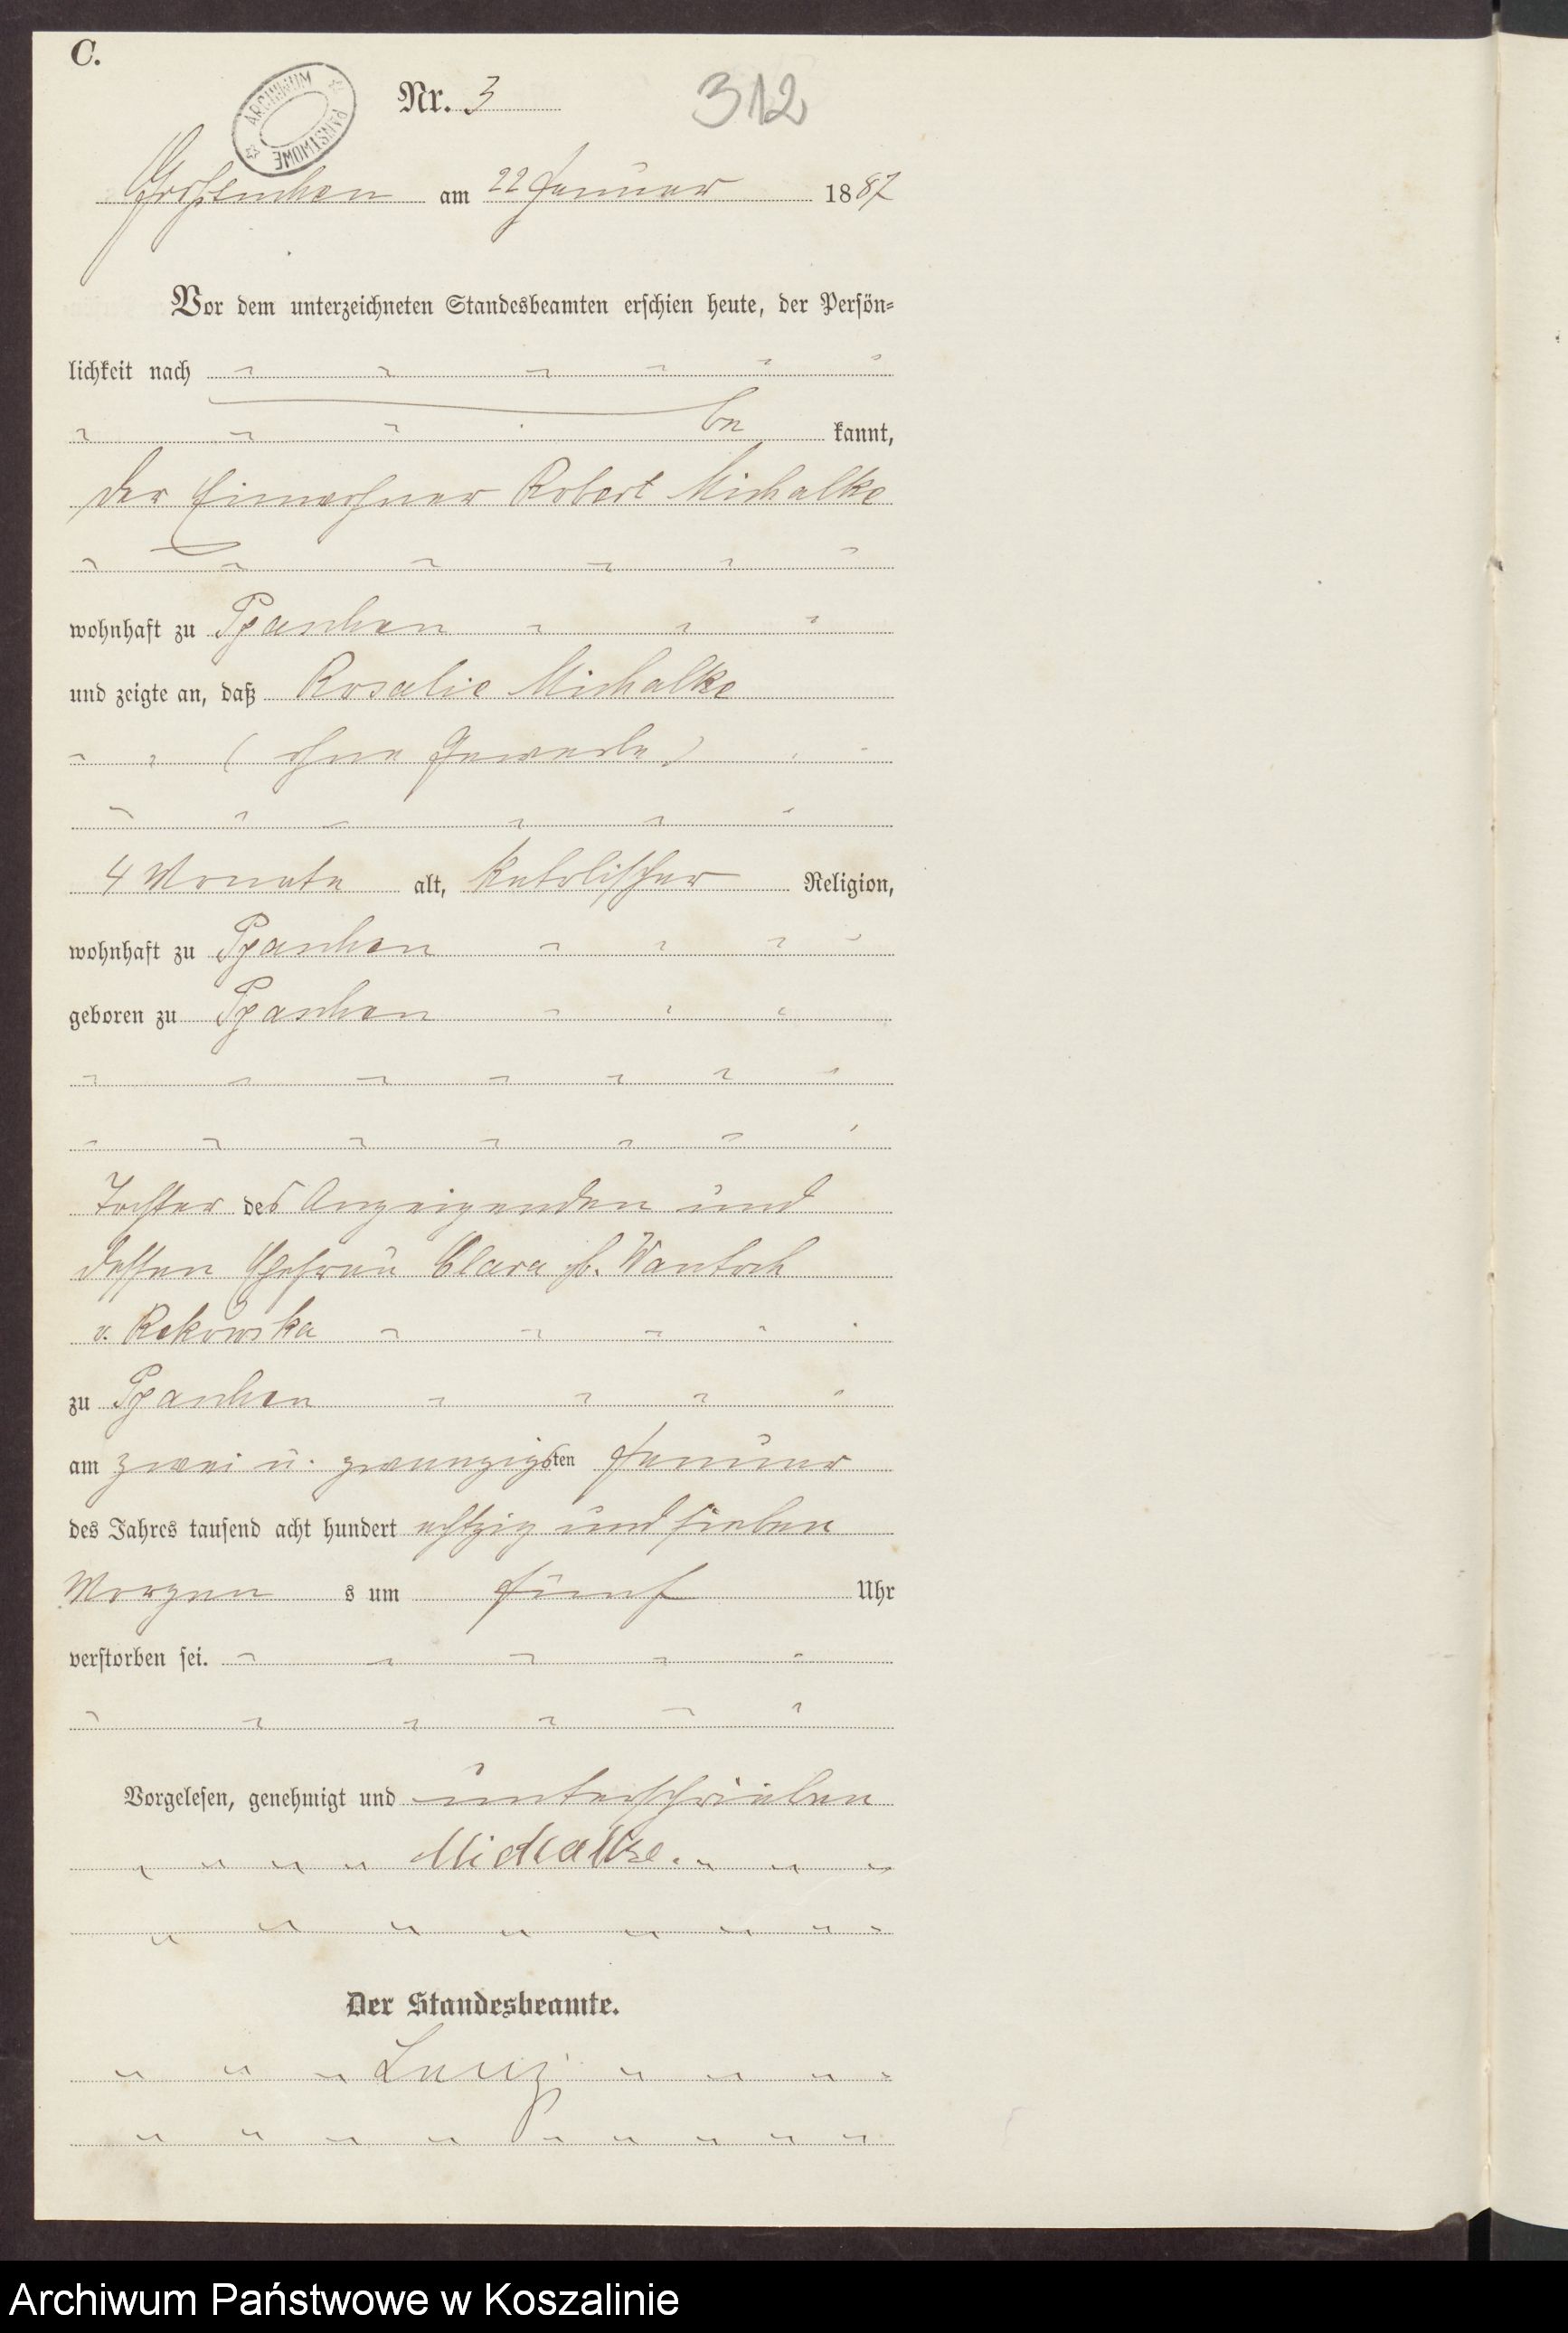 C.
ARCHIWUM PAŃSTWOWE
Nr. 3
312
am 22 Januar 1887
Vor dem unterzeichneten Standesbeamten erschien heute, der Persön-
lichkeit nach
be kannt,
der Einwohner Robert Michalke
wohnhaft zu
und zeigte an, daß Rosalie Michalke
(ohne Gewerbe)
4 Monate alt, katolischer Religion,
wohnhaft zu
geboren zu
Tochter des Anzeigenden und
dessen Ehefrau Clara gb. Wantoch
v. Rekowska
zu
am zwei u. zwanzigsten Januar
des Jahres tausend acht hundert achtzig und sieben
Morgen s um fünf Uhr
verstorben sei.
Vorgelesen, genehmigt und unterschrieben
Michalke.
Der Standesbeamte.
Archiwum Państwowe w Koszalinie